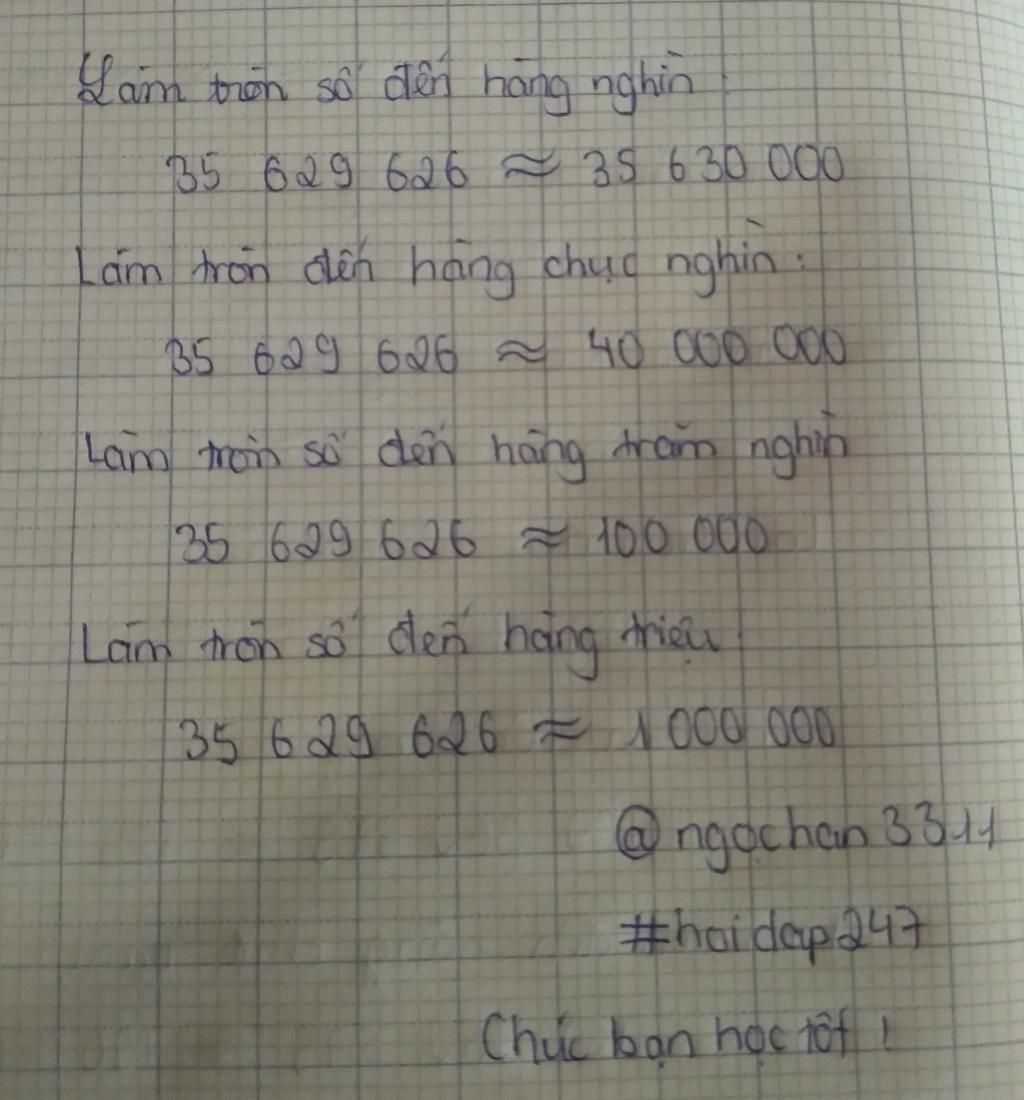 Làm tròn số đến hàng nghìn
35 629 626 ≈ 35 630 000
Làm tròn đến hàng chục nghìn:
35 629 626 ≈ 40 000 000
Làm tròn số đến hàng trăm nghìn
35 629 626 ≈ 100 000
Làm tròn số đến hàng triệu
35 629 626 ≈ 1 000 000
@ngochan3311
#hoidap247
Chúc bạn học tốt!